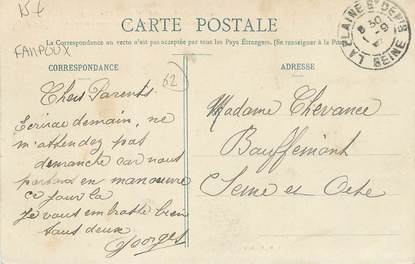 15 €
FAMPOUX
CARTE POSTALE
La Correspondance au verso n'est pas acceptée par tous les Pays Étrangers. (Se renseigner à la Poste)
LA PLAINE ST DENIS
SEINE
CORRESPONDANCE
ADRESSE
62
Chers Parents.
Ecrirai demain, ne
m'attendez pas
dimanche car nous
partons en manœuvre
ce jour la
Je vous embrasse bien
tous deux
Georges
Madame Chevance
Bauffemont
Seine et Oise